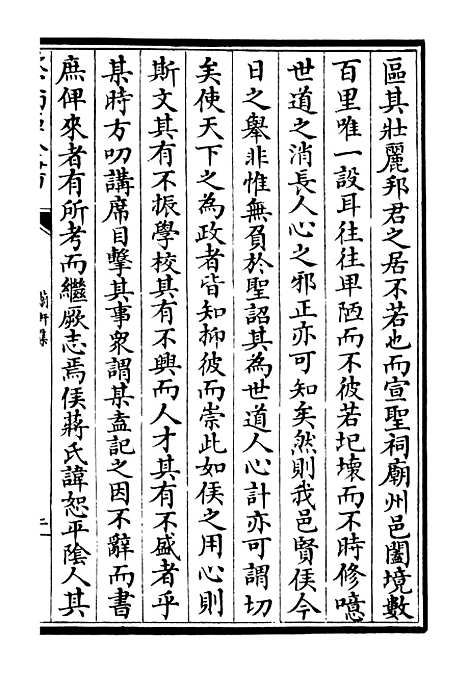 區其壯麗邦君之居不若也而宣聖祠廟州邑闔境數
百里唯一設耳往往卑陋而不彼若圮壊而不時修噫
世道之消長人心之邪正亦可知矣然則我邑賢侯今
日之舉非惟無負於聖詔其為世道人心計亦可謂切
矣使天下之為政者皆知抑彼而崇此如侯之用心則
斯文其有不振學校其有不興而人才其有不盛者乎
某時方叨講席目擊其事衆謂某盍記之因不辭而書
庶俾來者有所考而繼厥志焉侯蔣氏諱恕平陰人其